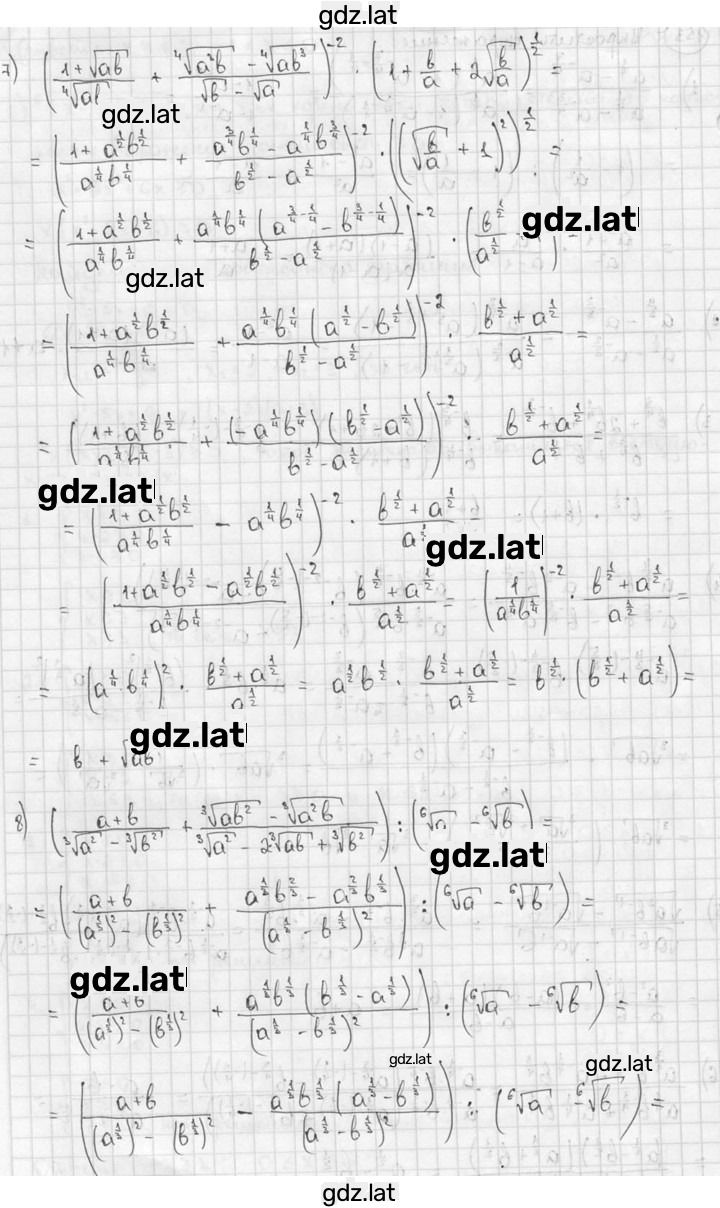 gdz.lat
7) ( (1+√ab)/(⁴√ab) + (⁴√a³b − ⁴√ab³)/(√b − √a) )⁻² · ( 1 + b/a + 2√(b/a) )^(1/2) =
= ( (1 + a^(1/2)b^(1/2))/(a^(1/4)b^(1/4)) + (a^(3/4)b^(1/4) − a^(1/4)b^(3/4))/(b^(1/2) − a^(1/2)) )⁻² · ( (√(b/a) + 1)² )^(1/2) =
gdz.lat
= ( (1 + a^(1/2)b^(1/2))/(a^(1/4)b^(1/4)) + (a^(1/4)b^(1/4) (a^(3/4−1/4) − b^(3/4−1/4)))/(b^(1/2) − a^(1/2)) )⁻² · ( b^(1/2)/a^(1/2)
gdz.lat
gdz.lat
= ( (1 + a^(1/2)b^(1/2))/(a^(1/4)b^(1/4)) + (a^(1/4)b^(1/4) (a^(1/2) − b^(1/2)))/(b^(1/2) − a^(1/2)) )⁻² · (b^(1/2) + a^(1/2))/a^(1/2) =
= ( (1 + a^(1/2)b^(1/2))/(a^(1/4)b^(1/4)) + ((−a^(1/4)b^(1/4)) (b^(1/2) − a^(1/2)))/(b^(1/2) − a^(1/2)) )⁻² · (b^(1/2) + a^(1/2))/a^(1/2) =
gdz.lat
= ( (1 + a^(1/2)b^(1/2))/(a^(1/4)b^(1/4)) − a^(1/4)b^(1/4) )⁻² · (b^(1/2) + a^(1/2))/a
gdz.lat
= ( (1 + a^(1/2)b^(1/2) − a^(1/2)b^(1/2))/(a^(1/4)b^(1/4)) )⁻² · (b^(1/2) + a^(1/2))/a^(1/2) = ( 1/(a^(1/4)b^(1/4)) )⁻² · (b^(1/2) + a^(1/2))/a^(1/2) =
= (a^(1/4) b^(1/4))² · (b^(1/2) + a^(1/2))/a^(1/2) = a^(1/2)b^(1/2) · (b^(1/2) + a^(1/2))/a^(1/2) = b^(1/2) · (b^(1/2) + a^(1/2)) =
= b + √ab
gdz.lat
8) ( (a+b)/(³√a² − ³√b²) + (³√ab² − ³√a²b)/(³√a² − 2³√ab + ³√b²) ) : (⁶√a − ⁶√b) =
gdz.lat
= ( (a+b)/((a^(1/3))² − (b^(1/3))²) + (a^(1/3)b^(2/3) − a^(2/3)b^(1/3))/(a^(1/3) − b^(1/3))² ) : (⁶√a − ⁶√b) =
gdz.lat
= ( (a+b)/((a^(1/3))² − (b^(1/3))²) + (a^(1/3)b^(1/3) (b^(1/3) − a^(1/3)))/(a^(1/3) − b^(1/3))² ) : (⁶√a − ⁶√b) =
gdz.lat
gdz.lat
= ( (a+b)/((a^(1/3))² − (b^(1/3))²) − (a^(1/3)b^(1/3) (a^(1/3) − b^(1/3)))/(a^(1/3) − b^(1/3))² ) : (⁶√a − ⁶√b) =
gdz.lat